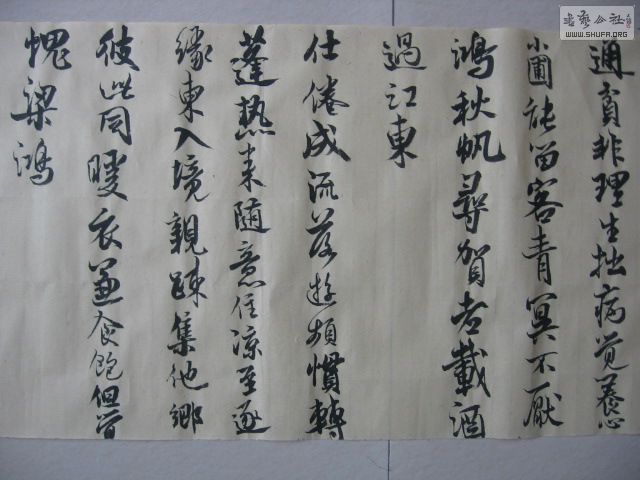 通貧非理生拙病覺養心
小圃能留客青冥不厭
鴻秋帆尋賀老載酒
過江東
仕倦成流落遊頻慣轉
蓬熱来随意住涼至逐
緣東入境親疎集他鄉
彼此同暖衣兼食飽但覺
愧梁鴻
書藝公社
WWW.SHUFA.ORG